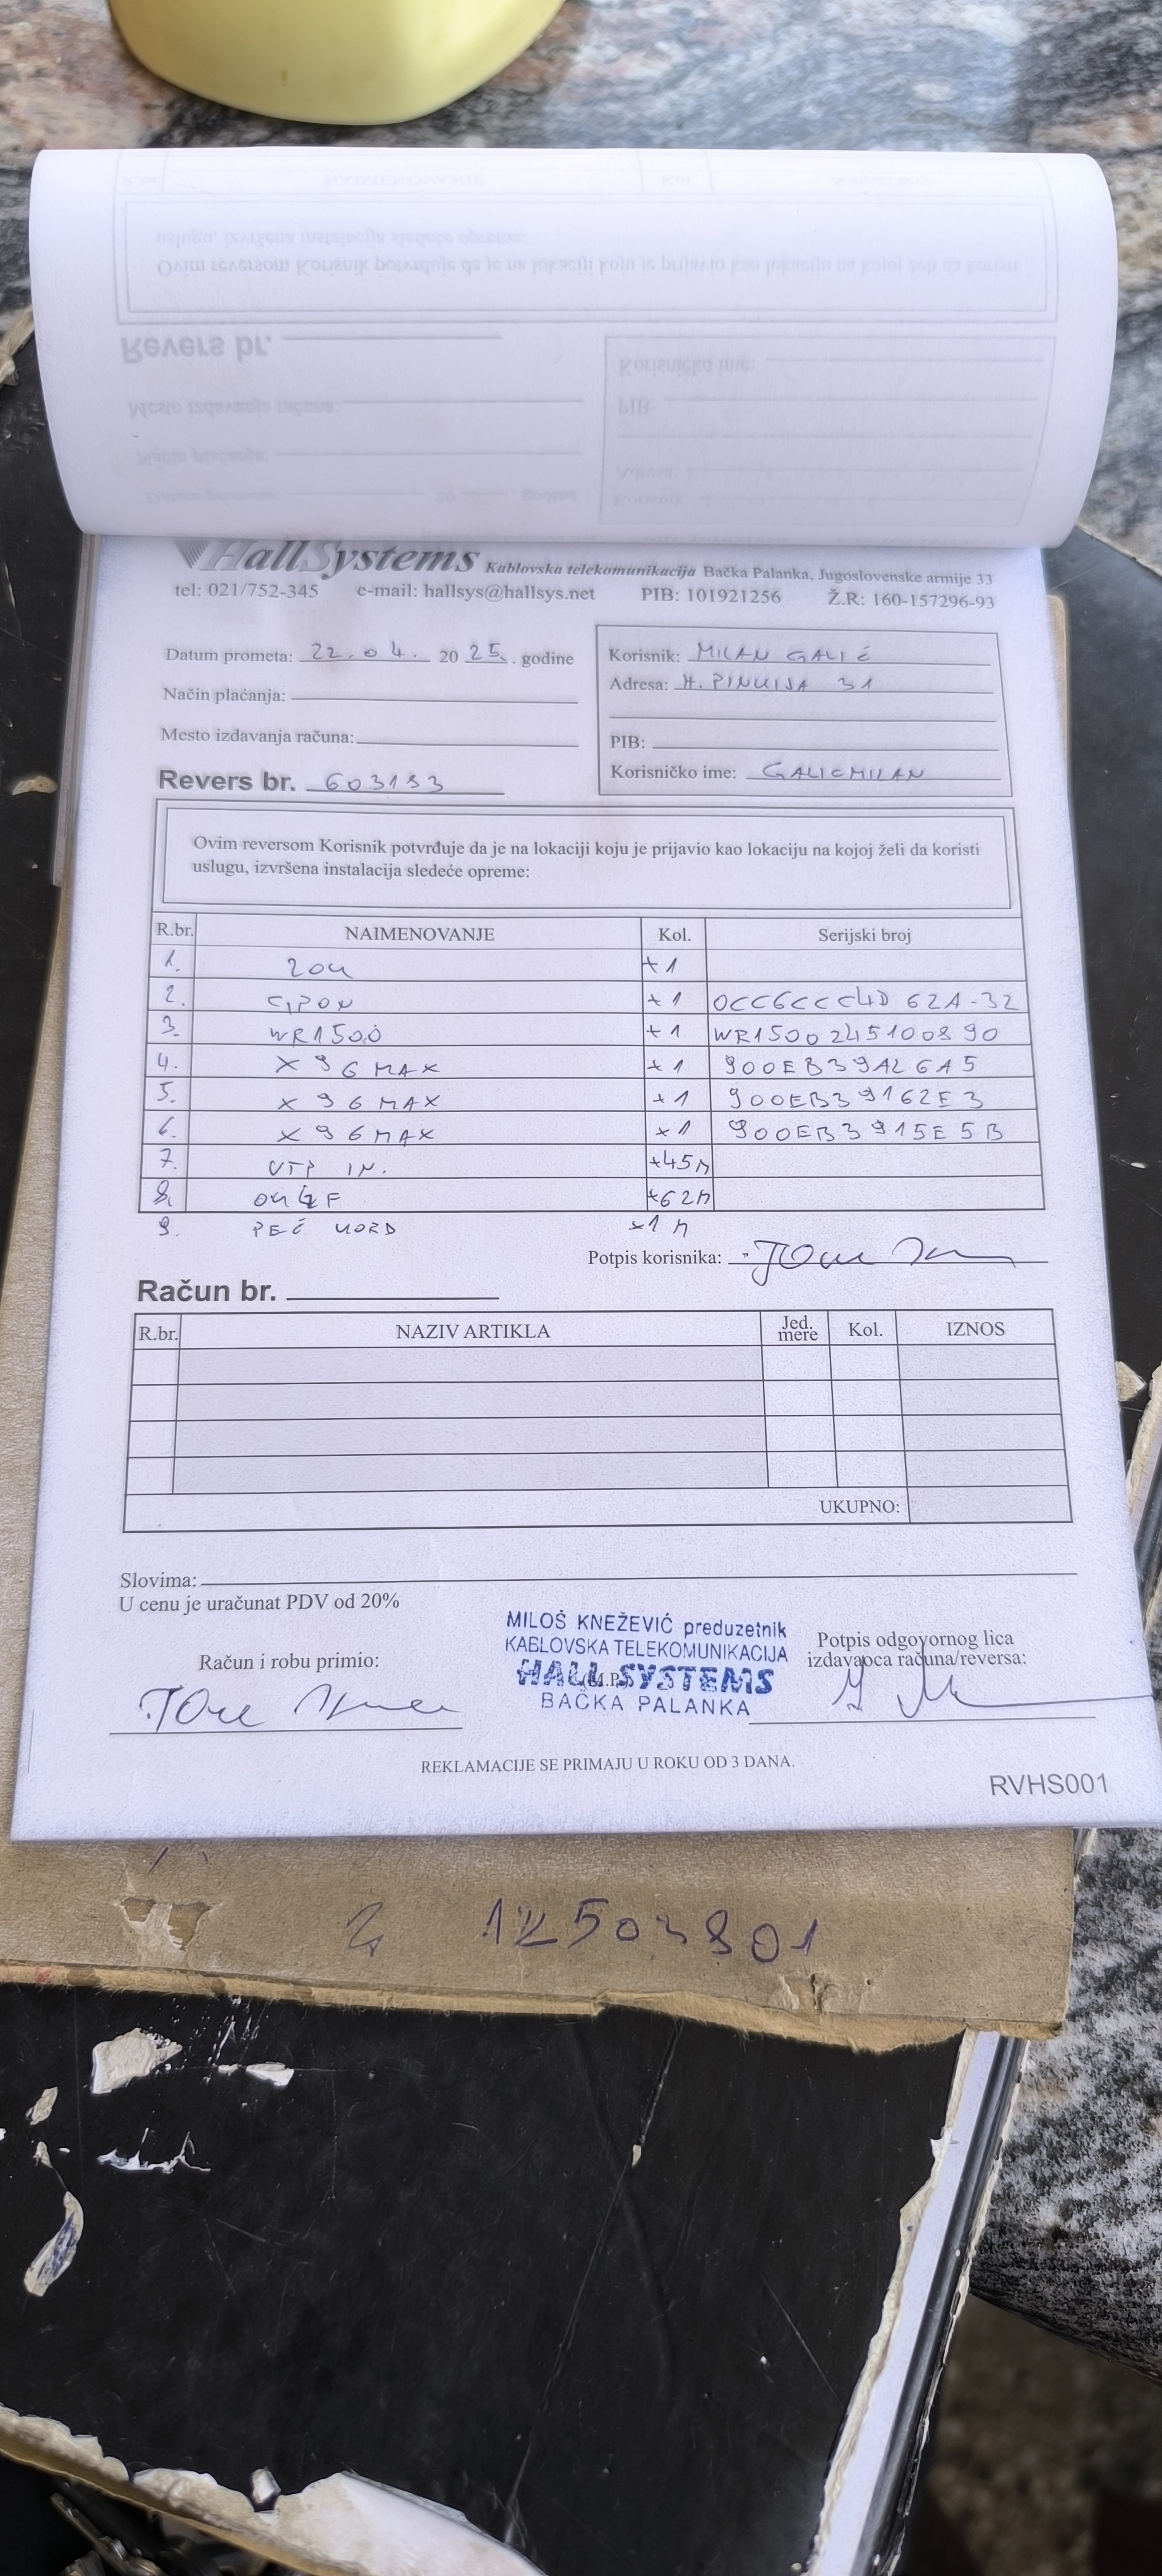 HallSystems Kablovska telekomunikacija Bačka Palanka, Jugoslovenske armije 33
tel: 021/752-345 e-mail: hallsys@hallsys.net PIB: 101921256 Ž.R: 160-157296-93
Datum prometa: 22.04. 2025. godine
Način plaćanja:
Mesto izdavanja računa:
Revers br. 603193
Korisnik: MILAN GALIĆ
Adresa: H. PINKIJA 31
PIB:
Korisničko ime: GALICMILAN
Ovim reversom Korisnik potvrđuje da je na lokaciji koju je prijavio kao lokaciju na kojoj želi da koristi
uslugu, izvršena instalacija sledeće opreme:
R.br. NAIMENOVANJE Kol. Serijski broj
1. ZOK +1
2. GPON +1 0CC6CCC4D62A-32
3. WR1500 +1 WR1500245100890
4. X96MAX +1 900EB39A26A5
5. X96MAX +1 900EB39162E3
6. X96MAX +1 900EB3915E5B
7. UTP IN. +45M
8. OK4F +62M
9. +1
Potpis korisnika:
Račun br.
R.br. NAZIV ARTIKLA Jed. mere Kol. IZNOS
UKUPNO:
Slovima:
U cenu je uračunat PDV od 20%
Račun i robu primio:
MILOŠ KNEŽEVIĆ preduzetnik
KABLOVSKA TELEKOMUNIKACIJA
HALL SYSTEMS
BAČKA PALANKA
(M.P.)
Potpis odgovornog lica
izdavaoca računa/reversa:
REKLAMACIJE SE PRIMAJU U ROKU OD 3 DANA.
RVHS001